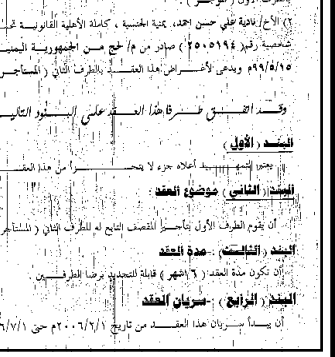 بالطرف الأول ( المؤجر ) .
٢) الأخ/ نادية علي حسن احمد، يمنية الجنسية ، كاملة الأهلية القانونية تحـ
شخصية رقم( ٢٠٠٥١٩٤ ) صادر من م/ لحج من الجمهوريــة اليمنيـ
٩٩/٥/١٥م ويدعى لأغــراض هذا العقــد بالطرف الثاني ( المستأجر
وقــد اتفــق طــرفا هذا العــقد علــى البــنود التاليــ
البنـد ( الأول )
يعتبر التمهــيد أعلاه جزء لا يتجــزأ من هذا العقــد
البند ( الثاني ) موضوع العقد
أن يقوم الطرف الأول بتأجير المقصف التابع له للطرف الثاني ( المستأجر
البند ( الثالــث) :-مدة العقد
أن تكون مدة العقد ( ٦شهر ) قابلة للتجديد برضا الطرفــين
البند ( الرابع ) :-سريان العقد
أن يبــدأ ســريان هذا العقــد من تاريخ ٢٠٠٦/٢/١م حتى ٦/٧/١